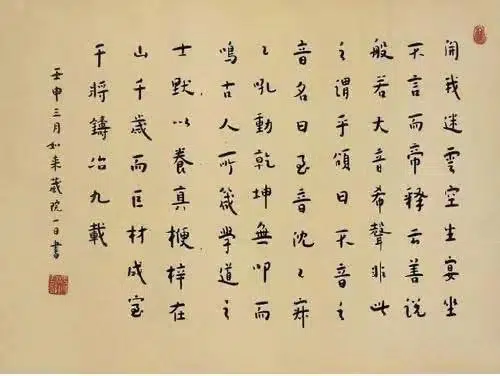 開我迷雲空生宴坐
无言而帝釋云善說
般若大音希聲非此
之謂乎頌曰无音之
音名曰至音沈〻寂
〻吼動乾坤無叩而
鳴古人所箴學道之
士默以養真楩梓在
山千歲而巨材成宝
干將鑄冶九載
壬申三月如来藏院一日書